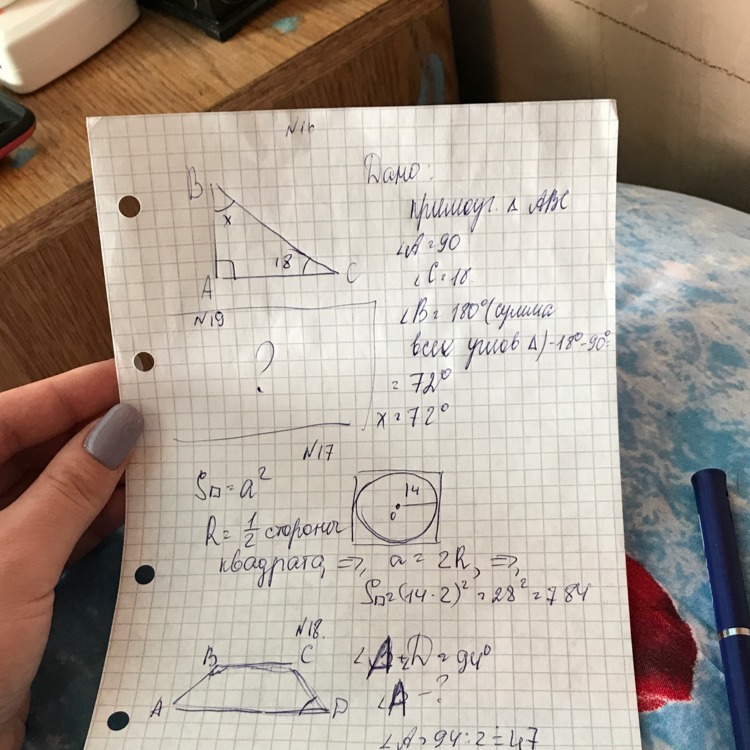 N16
B
x
18
A
C
Дано:
прямоуг. △ ABC
∠A=90
∠C=18
∠B=180°(сумма
всех углов △)-18°-90°=
=72°
x=72°
N19
?
N17
S□=a²
14
0
R=1/2 стороны
квадрата, =>, a=2R, =>,
S□=(14·2)²=28²=784
N18.
B
C
A
D
∠A+D=94°
∠A-?
∠A=94:2=47